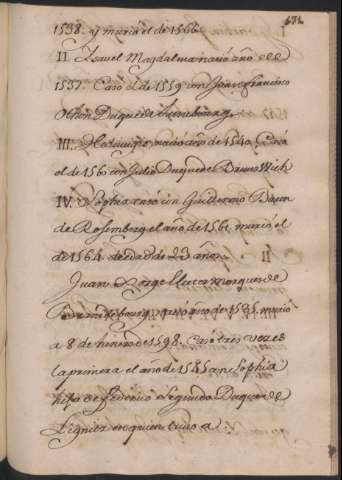 632
1538. y murio el de 1566
II. Isavel Magdalena nació año de
1537. Casó el de 1559 con Juan francisco
Othon Duque de Luneburg.
III. Heduuigis nacio año de 1540 Casó
el de 1560 con Julio Duque de Brunswich
IV. Sophia casó con Guillermo Baron
de Rosemberg el año de 1561. murió el
de 1564. de edad de 23 años.
Juan Jorge Elector Marques de
Brandebourg, nació año de 1525. murio
a 8 de henero de 1598. Casó tres vezes
la primera el año de 1545 con Sophia
hija de federico Segundo Duque de
Lignits en quien tuvo a